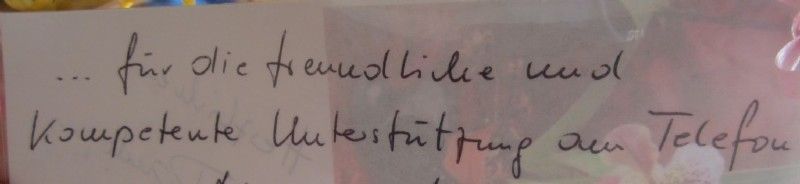 ... für die freundliche und
kompetente Unterstützung am Telefon